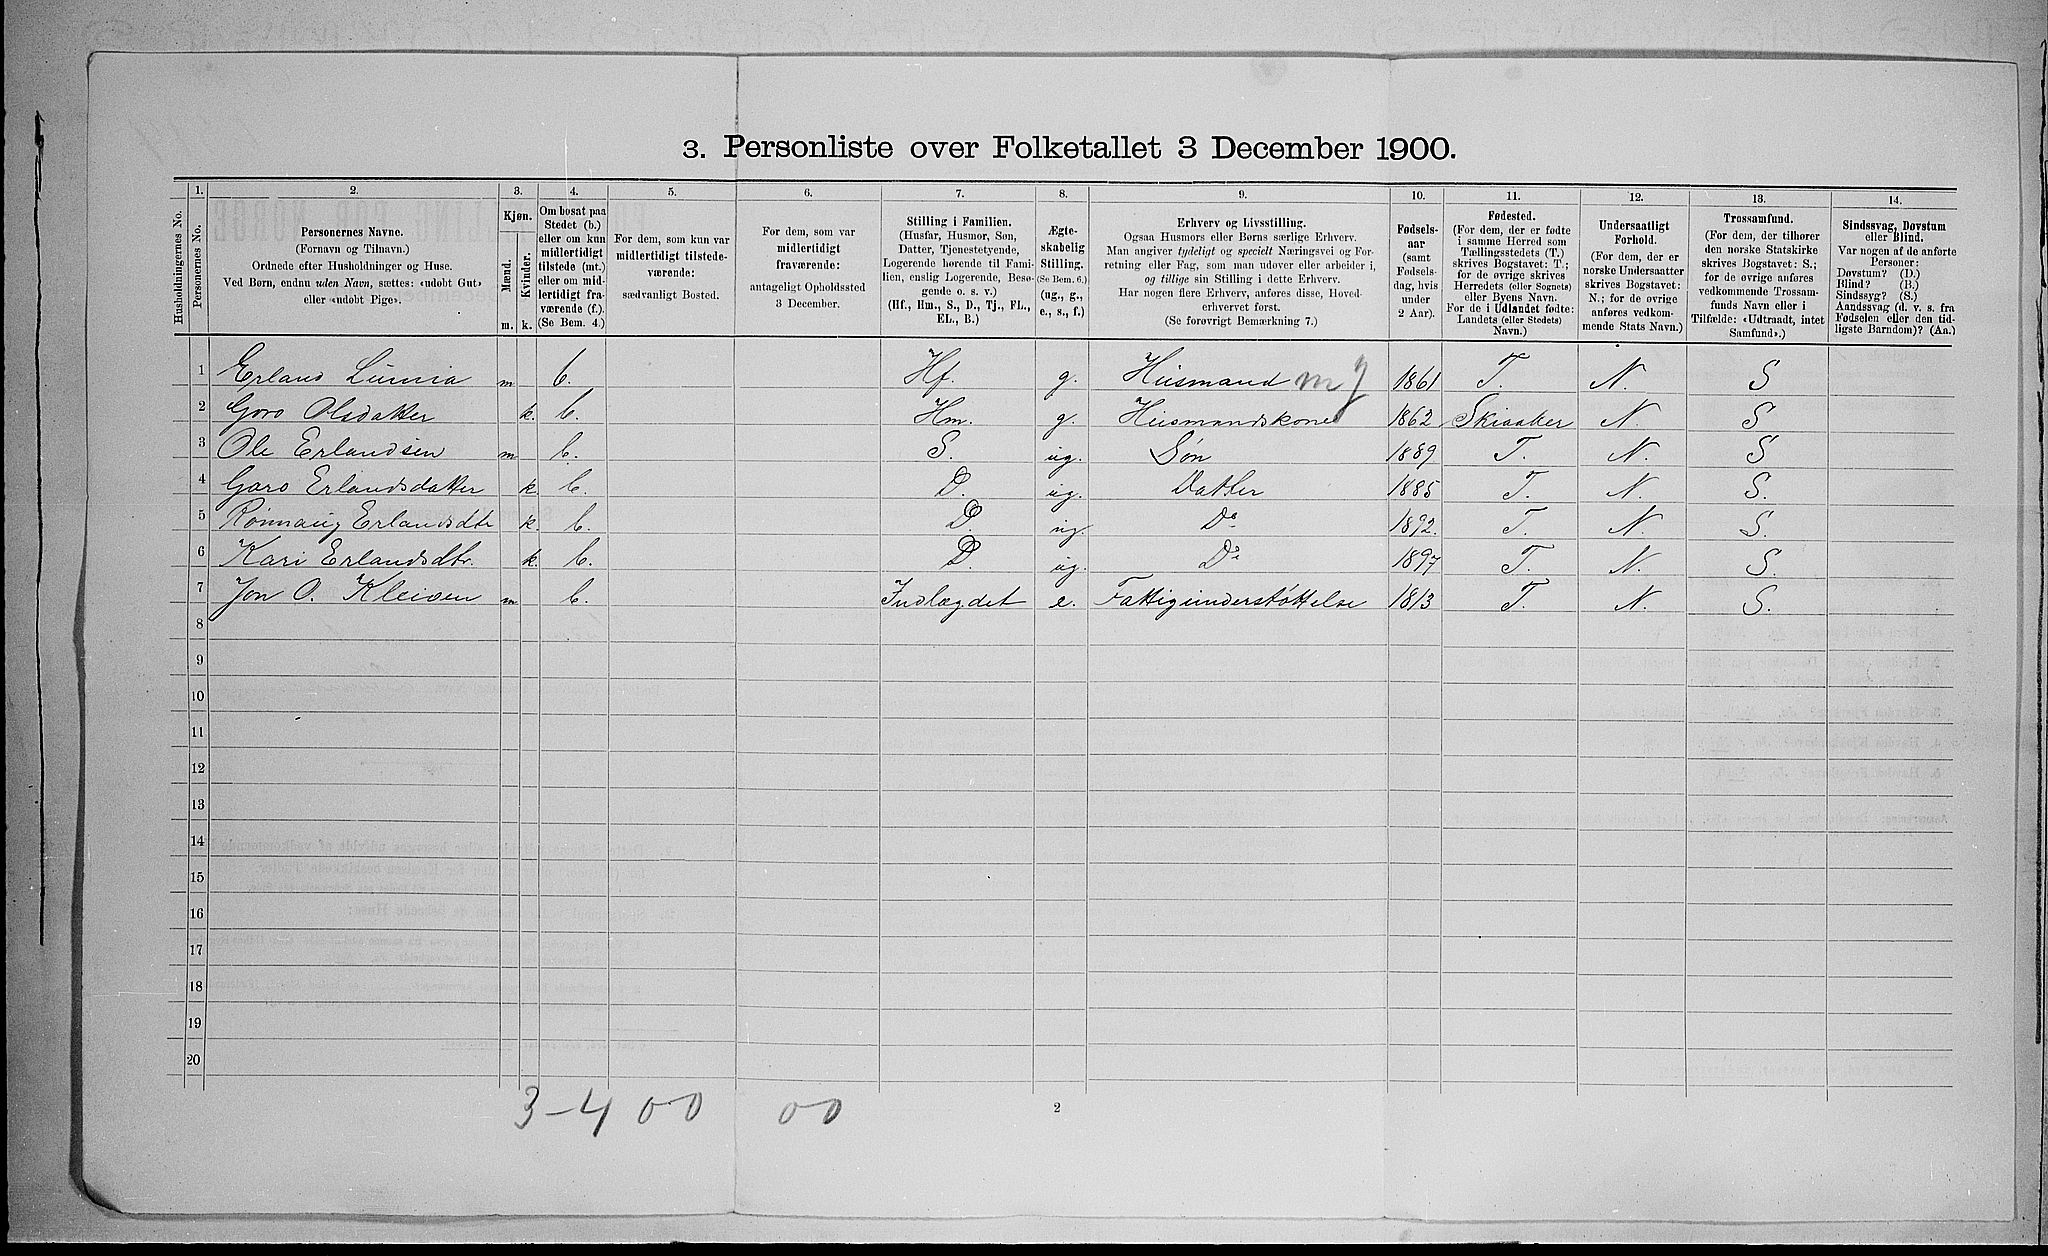 3. Personliste over Folketallet 3 December 1900.
Husholdningernes No.
1. Personernes No.
2. Personernes Navne.
(Fornavn og Tilnavn.)
Ordnede efter Husholdninger og Huse.
Ved Børn, endnu uden Navn, sættes: «udøbt Gut»
eller «udøbt Pige».
3. Kjøn.
Mænd. m.
Kvinder. k.
4. Om bosat paa
Stedet (b.)
eller om kun
midlertidigt
tilstede (mt.)
eller om mid-
lertidigt fra-
værende (f.).
(Se Bem. 4.)
5. For dem, som kun var
midlertidigt tilstede-
værende:
sædvanligt Bosted.
6. For dem, som var
midlertidigt
fraværende:
antageligt Opholdssted
3 December.
7. Stilling i Familien.
(Husfar, Husmor, Søn,
Datter, Tjenestetyende,
Logerende hørende til Fami-
lien, enslig Logerende, Besø-
gende o. s. v.)
(Hf., Hm., S., D., Tj., FL.,
EL., B.)
8. Ægte-
skabelig
Stilling.
(Se Bem. 6.)
(ug., g.,
e., s., f.)
9. Erhverv og Livsstilling.
Ogsaa Husmors eller Børns særlige Erhverv.
Man angiver tydeligt og specielt Næringsvei og For-
retning eller Fag, som man udøver eller arbeider i,
og tillige sin Stilling i dette Erhverv.
Har nogen flere Erhverv, anføres disse, Hoved-
erhvervet først.
(Se forøvrigt Bemærkning 7.)
10. Fødsels-
aar
(samt
Fødsels-
dag, hvis
under
2 Aar).
11. Fødested.
(For dem, der er fødte
i samme Herred som
Tællingsstedets (T.)
skrives Bogstavet: T.;
for de øvrige skrives
Herredets (eller Sognets)
eller Byens Navn.
For de i Udlandet fødte:
Landets (eller Stedets)
Navn.)
12. Undersaatligt
Forhold.
(For dem, der er
norske Undersaatter
skrives Bogstavet:
N.; for de øvrige
anføres vedkom-
mende Stats Navn.)
13. Trossamfund.
(For dem, der tilhører
den norske Statskirke
skrives Bogstavet: S.;
for de øvrige anføres
vedkommende Trossam-
funds Navn eller i
Tilfælde: «Udtraadt, intet
Samfund».)
14. Sindssvag, Døvstum
eller Blind.
Var nogen af de anførte
Personer:
Døvstum? (D.)
Blind? (B.)
Sindssyg? (S.)
Aandssvag (d. v. s. fra
Fødselen eller den tid-
ligste Barndom)? (Aa.)
1 Erland m b. Hf. g. Husmand m j 1861 T. N. S
2 Goro Olsdatter k. b. Hm. g. Husmandskone 1862 Skiaaker N. S
3 Ole Erlandsen m b. S. ug. Søn 1889 T. N. S
4 Goro Erlandsdatter k. b. D. ug. Datter 1885 T. N. S.
5 Rønnaug Erlandsdtr k. b. D. ug. Do 1892. T. N. S.
6 Kari Erlandsdtr. k. b. D. ug. Do 1897 T. N. S.
7 Jon O. Kleiven m b. Indlægdet e. Fattigunderstøttelse 1813 T. N. S.
8
9
10
11
12
13
14
15
16
17
18
19
20
3-4 00 00
2